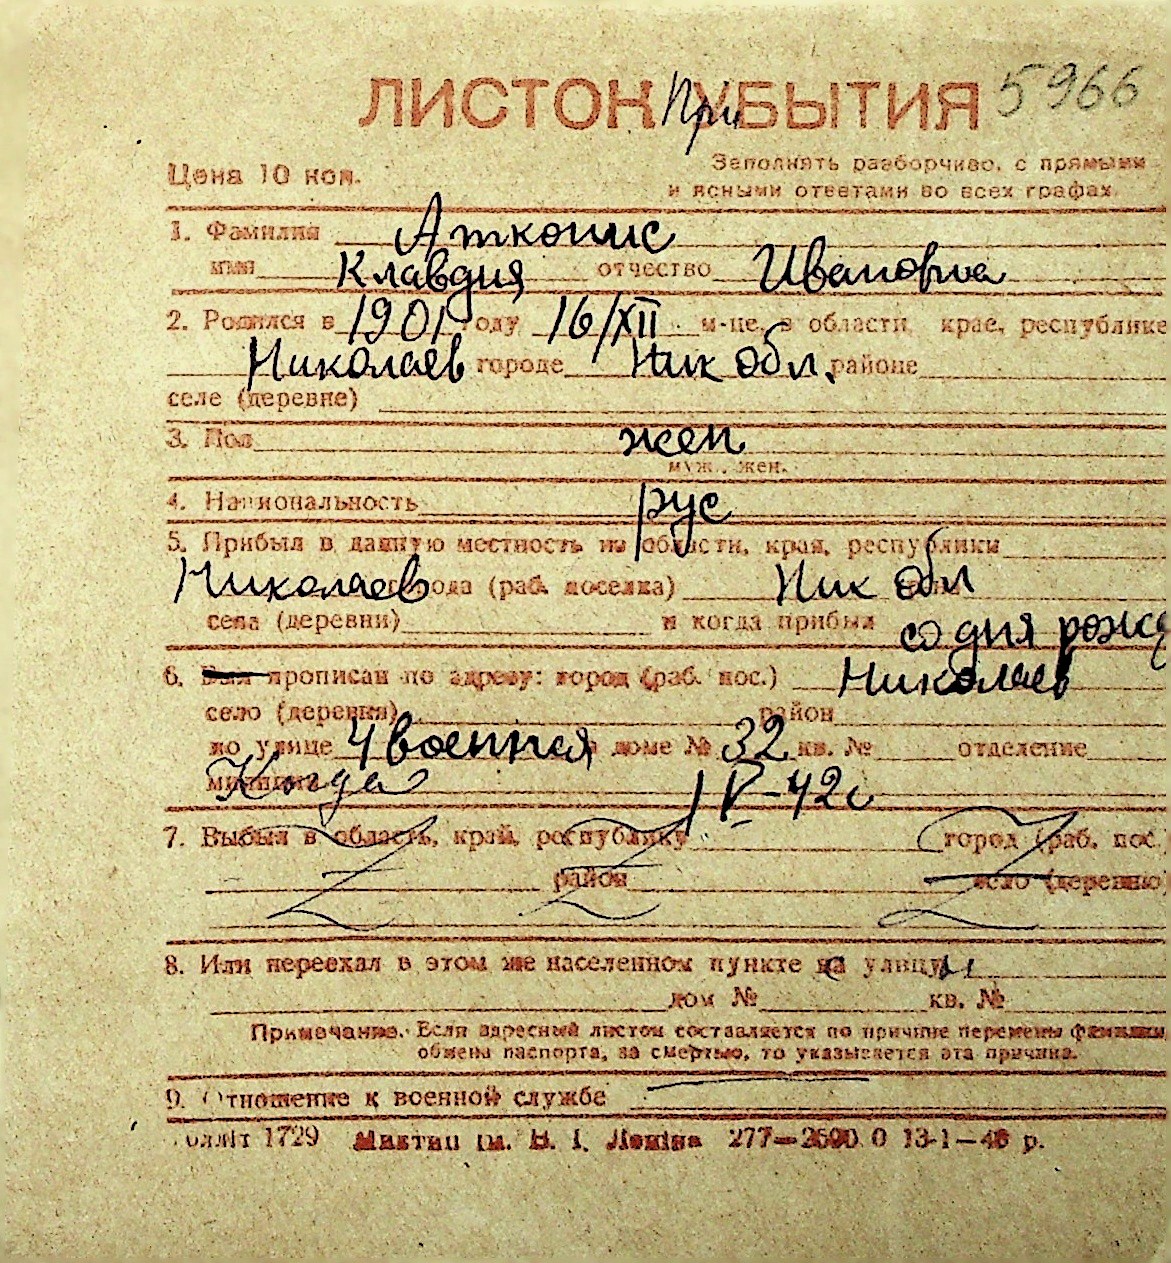 ЛИСТОК При УБЫТИЯ 5966
Цена 10 коп. Заполнять разборчиво, с прямыми
и ясными ответами во всех графах.
1. Фамилия Аткопис
имя Клавдия отчество Ивановна
2. Родился в 1901 году 16/XII м-це, в области, крае, республике
Николаев городе Ник обл. районе
селе (деревне)
3. Пол жен
муж., жен.
4. Национальность рус
5. Прибыл в данную местность из области, края, республики
Николаев города (раб. поселка) Ник обл
села (деревни) и когда прибыл со дня рожд
6. Был прописан по адресу: город (раб. пос.) Николаев
село (деревня) район
по улице 4 военная в доме № 32 кв. № отделение
милиции Когда 1 V-42г
7. Выбыл в область, край, республику город (раб. пос.
район село (деревню)
Z Z Z
8. Или переехал в этом же населенном пункте на улицу
дом № кв. №
Примечание. Если адресный листок составляется по причине перемены фамилии,
обмена паспорта, за смертью, то указывается эта причина.
9. Отношение к военной службе
1729 ім. В. І. Леніна 277— О 13-1—40 р.